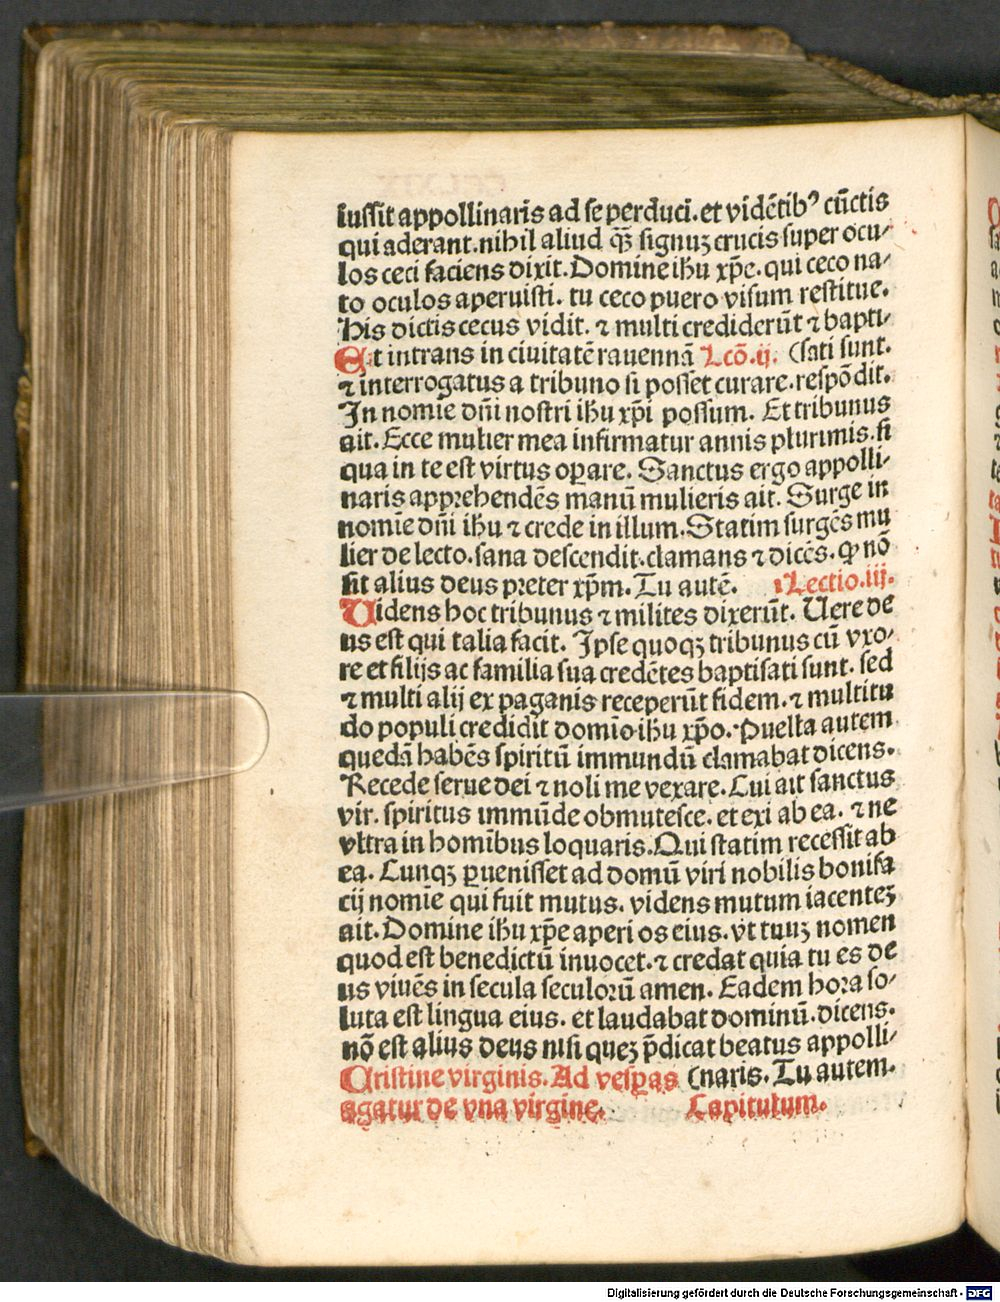 iussit appollinaris ad se perduci. et vidētibꝰ cūctis
qui aderant. nihil aliud qȝ̄ signuȝ crucis super ocu⸗
los ceci faciens dixit. Domine ihu xp̄e. qui ceco na⸗
to oculos aperuisti. tu ceco puero visum restitue.
His dictis cecus vidit. ⁊ multi crediderūt ⁊ bapti⸗
Et intrans in ciuitatē rauennā Lcō. ij. (sati sunt.
⁊ interrogatus a tribuno si posset curare. respōdit.
In nomīe dn̄i nostri ihu xp̄i possum. Et tribunus
ait. Ecce mulier mea infirmatur annis plurimis. si
qua in te est virtus oꝑare. Sanctus ergo appolli⸗
naris apprehendēs manū mulieris ait. Surge in
nomīe dn̄i ihu ⁊ crede in illum. Statim surgēs mu
lier de lecto. sana descendit. clamans ⁊ dicēs. ꝙ nō
sit alius deus preter xp̄m. Tu autē. Lectio. iij.
Videns hoc tribunus ⁊ milites dixerūt. Uere de
us est qui talia facit. Ipse quoqȝ tribunus cū vxo⸗
re et filijs ac familia sua credētes baptisati sunt. sed
⁊ multi alij ex paganis receperūt fidem. ⁊ multitu
do populi credidit domīo ihu xp̄o. Puella autem
quedā habēs spiritū immundū clamabat dicens.
Recede serue dei ⁊ noli me vexare. Cui ait sanctus
vir. spiritus immūde obmutesce. et exi ab ea. ⁊ ne
vltra in homībus loquaris. Qui statim recessit ab
ea. Cunqȝ ꝑuenisset ad domū viri nobilis bonifa
cij nomīe qui fuit mutus. videns mutum iacenteȝ
ait. Domine ihu xp̄e aperi os eius. vt tuuȝ nomen
quod est benedictū inuocet. ⁊ credat quia tu es de
us viuēs in secula seculorū amen. Eadem hora so⸗
luta est lingua eius. et laudabat dominū. dicens.
nō est alius deus nisi queȝ p̄dicat beatus appolli⸗
Cristine virginis. Ad vesꝑas (naris. Tu autem.
agatur de vna virgine. Capitulum.
Digitalisierung gefördert durch die Deutsche Forschungsgemeinschaft - DFG